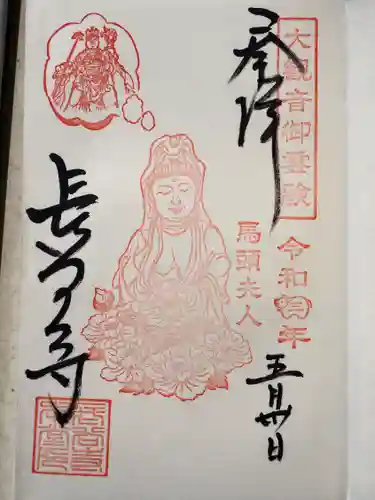 大観音御霊験
奉拝
令和 年
五月廿日
馬頭夫人
長谷寺